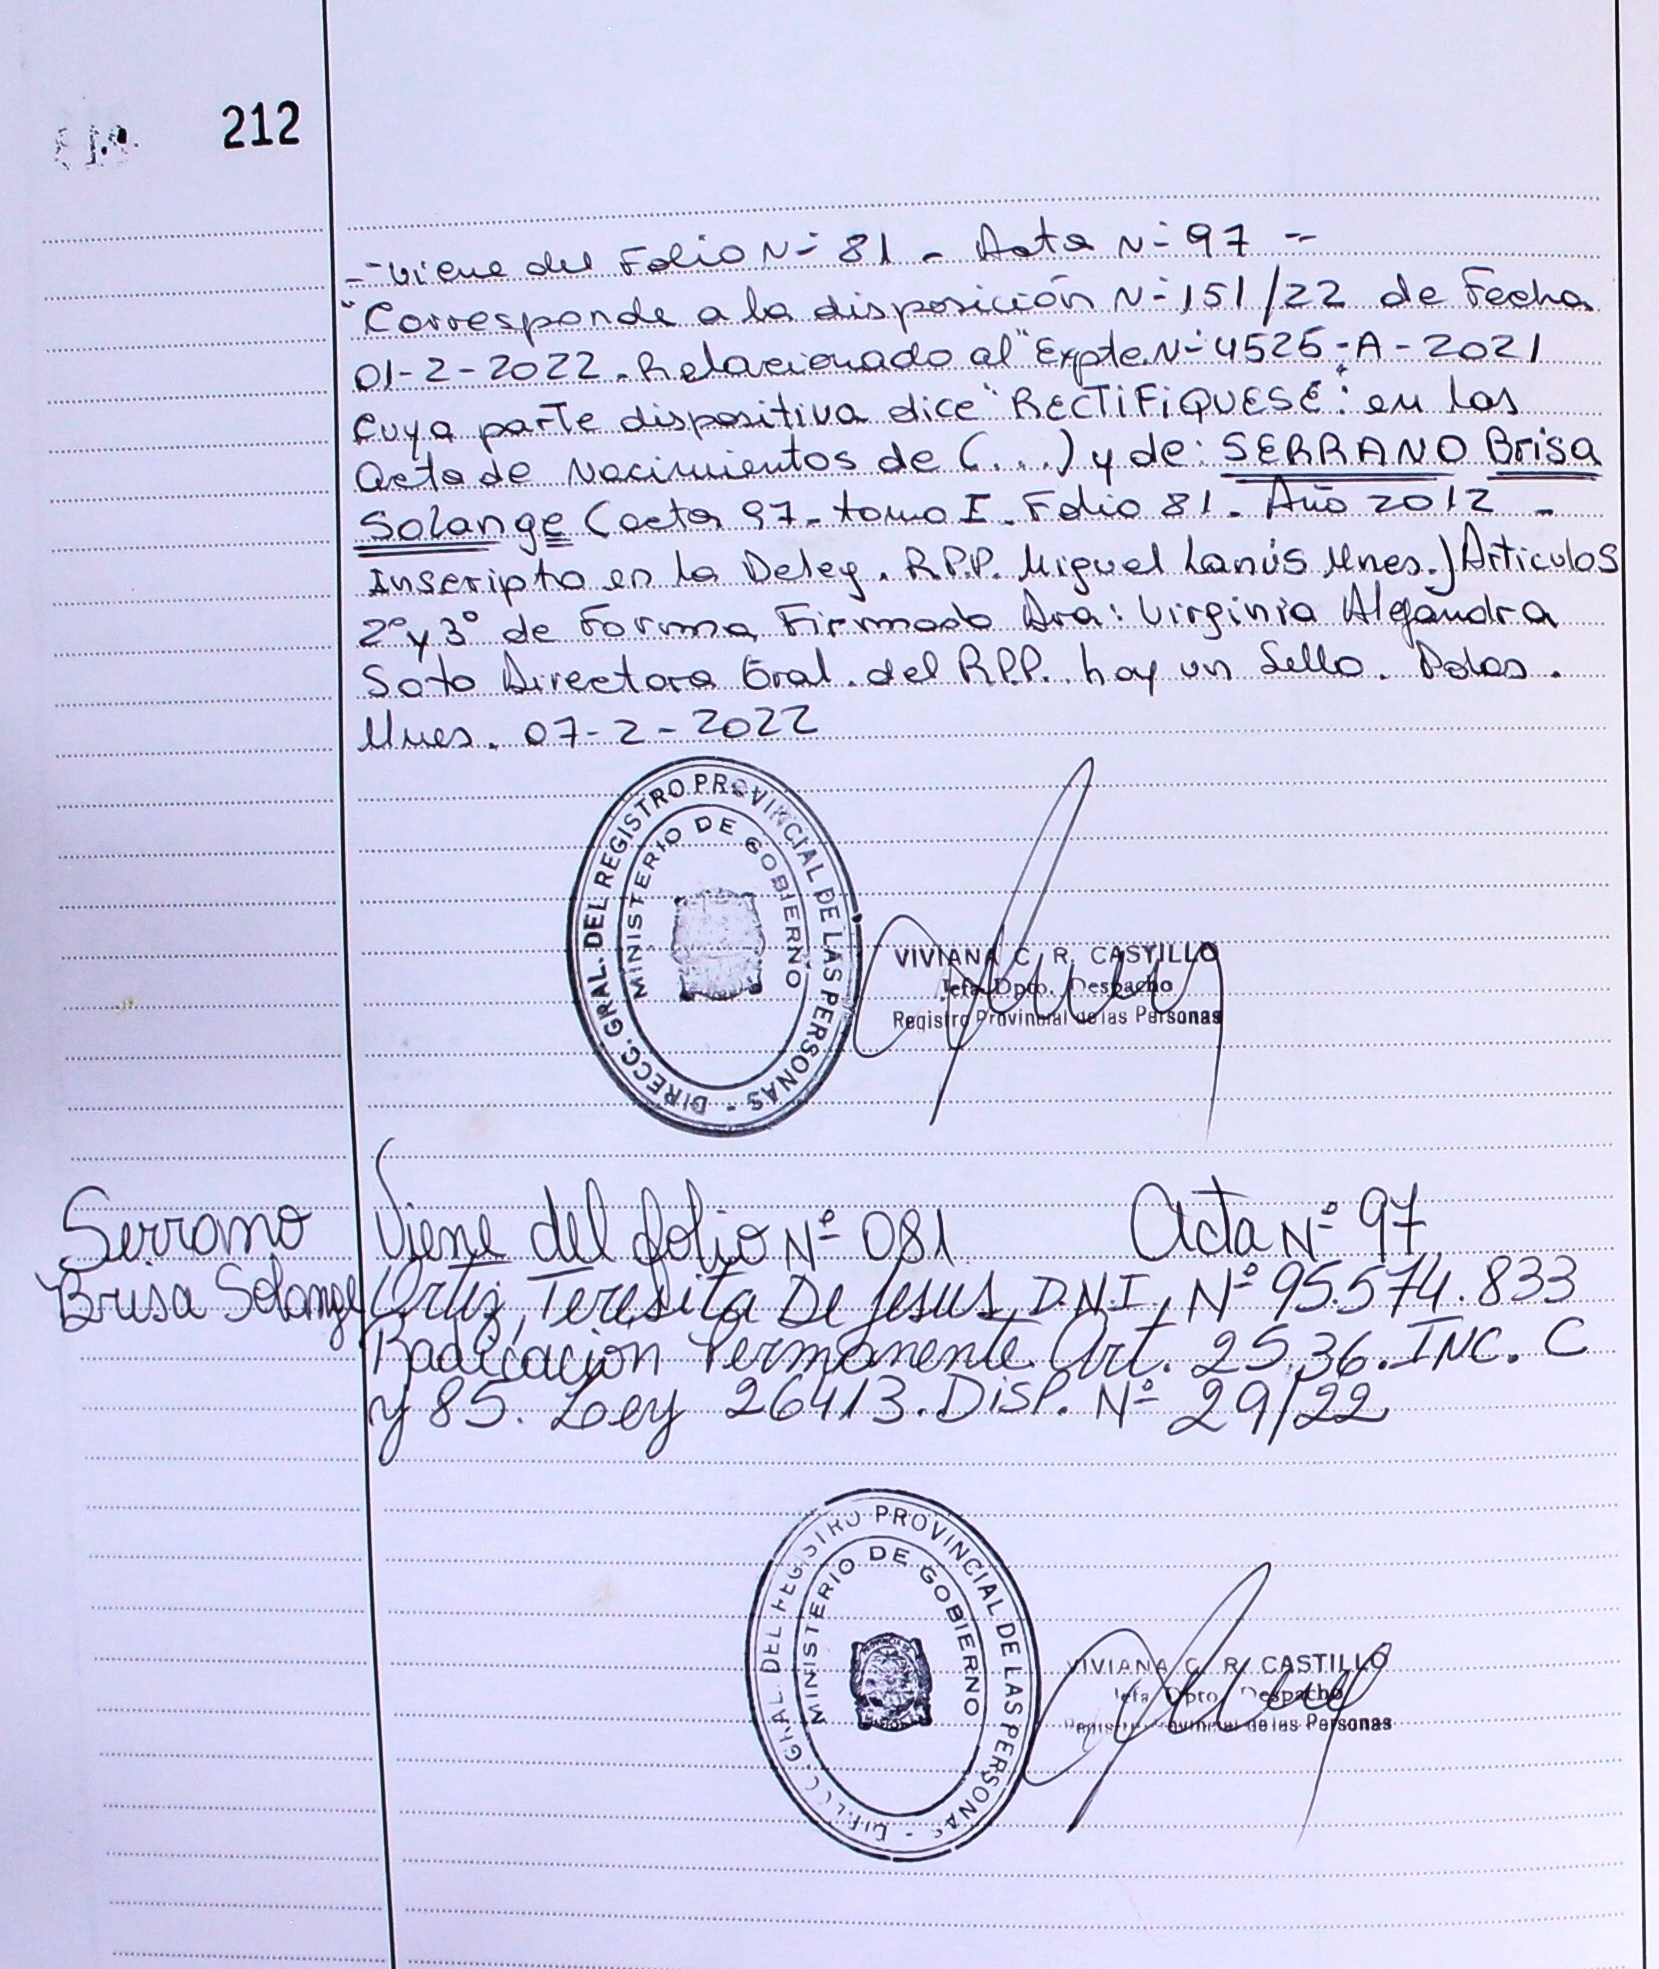 212
-- Viene del Folio Nº 81 - Acta Nº 97 --
"Corresponde a la disposición Nº 151/22 de Fecha
01-2-2022. Relacionado al "Expte. Nº 4526-A-2021
cuya parte dispositiva dice "RECTIFIQUESE": en las
acta de Nacimientos de (...) y de: SERRANO Brisa
Solange (acta 97. tomo I. Folio 81. Año 2012 -
Inscripta en la Deleg. R.P.P. Miguel Lanús Mnes.) Articulos
2º y 3º de Forma Firmado Dra: Virginia Alejandra
Soto Directora Gral. del R.P.P. hay un Sello. Pdas.
Mnes. 07-2-2022
DIRECC. GRAL. DEL REGISTRO PROVINCIAL DE LAS PERSONAS -
MINISTERIO DE GOBIERNO
VIVIANA C. R. CASTILLO
Jefa Dpto. Despacho
Registro Provincial de las Personas
Serrano
Brisa Solange
Viene del folio Nº 081 Acta Nº 97
Ortiz, Teresita De Jesus, D.N.I. Nº 95.574.833
Radicación Permanente. Art. 25, 36. INC. C
y 85. Ley 26413. Disp. Nº 29/22
DIRECC. GRAL. DEL REGISTRO PROVINCIAL DE LAS PERSONAS -
MINISTERIO DE GOBIERNO
VIVIANA C. R. CASTILLO
Jefa Dpto. Despacho
Registro Provincial de las Personas